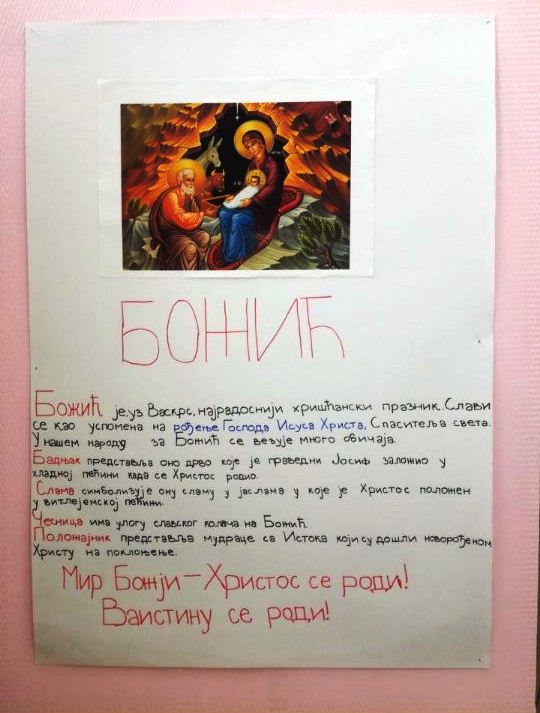 БОЖИЋ
Божић је, уз Васкрс, најрадоснији хришћански празник. Слави
се као успомена на рођење Господа Исуса Христа, Спаситеља света.
У нашем народу за Божић се везује много обичаја.
Бадњак представља оно дрво које је праведни Јосиф заложио у
хладној пећини када се Христос родио.
Слама симболизује ону сламу у јаслама у које је Христос положен
у витлејемској пећини.
Чесница има улогу славског колача на Божић.
Положајник представља мудраце са Истока који су дошли новорођеном
Христу на поклоњење.
Мир Божји – Христос се роди!
Ваистину се роди!